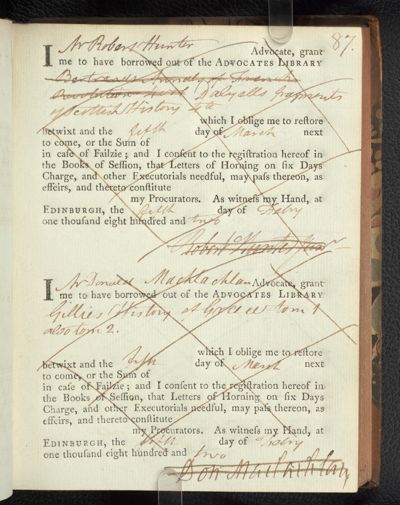 87.
I Mr Robert Hunter Advocate, grant
me to have borrowed out of the ADVOCATES LIBRARY
Dalyells fragments
of Scottish History 4to
which I oblige me to reſtore
betwixt and the fifth day of March next
to come, or the Sum of
in caſe of Failzie; and I conſent to the regiſtration hereof in
the Books of Seſſion, that Letters of Horning on ſix Days
Charge, and other Executorials needful, may paſs thereon, as
effeirs, and thereto conſtitute
my Procurators. As witneſs my Hand, at
EDINBURGH, the fifth day of Febry
one thouſand eight hundred and two
Robert Hunter
I Mr Donald Macklachlan Advocate, grant
me to have borrowed out of the ADVOCATES LIBRARY
Gillies History of Greece tom 1
also tom 2.
which I oblige me to reſtore
betwixt and the fifth day of March next
to come, or the Sum of
in caſe of Failzie; and I conſent to the regiſtration hereof in
the Books of Seſſion, that Letters of Horning on ſix Days
Charge, and other Executorials needful, may paſs thereon, as
effeirs, and thereto conſtitute
my Procurators. As witneſs my Hand, at
EDINBURGH, the fifth day of Febry
one thouſand eight hundred and two
Don Maclachlan